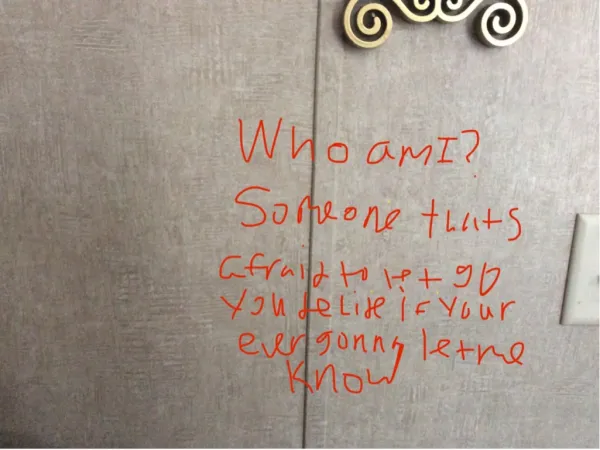 Who am I?
Someone thats
afraid to let go
you decide if your
ever gonna let me
know